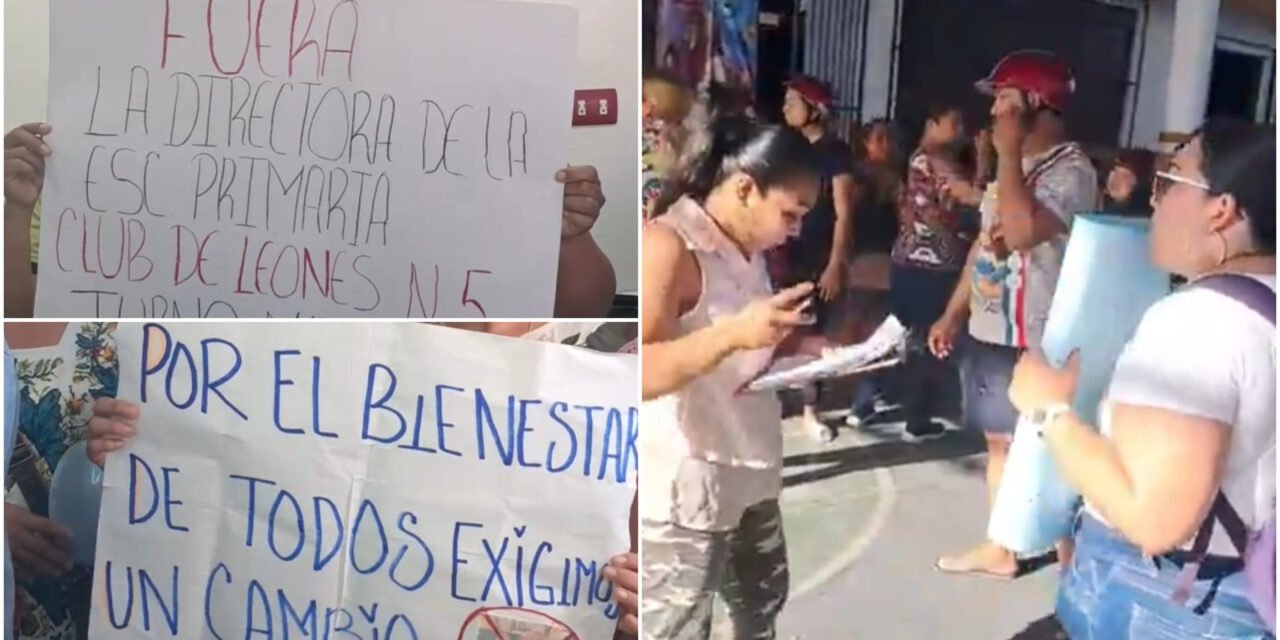 FUERA
LA DIRECTORA DE LA
ESC PRIMARIA
CLUB DE LEONES N 5
TURNO
POR EL BIENESTAR
DE TODOS EXIGIMOS
UN CAMBIO